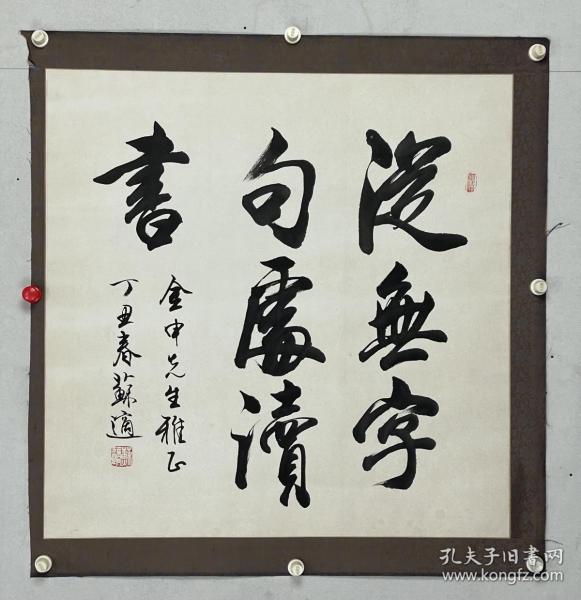 從無字
句處讀
書
金申先生雅正
丁丑春蘇適
孔夫子旧书网
www.kongfz.com